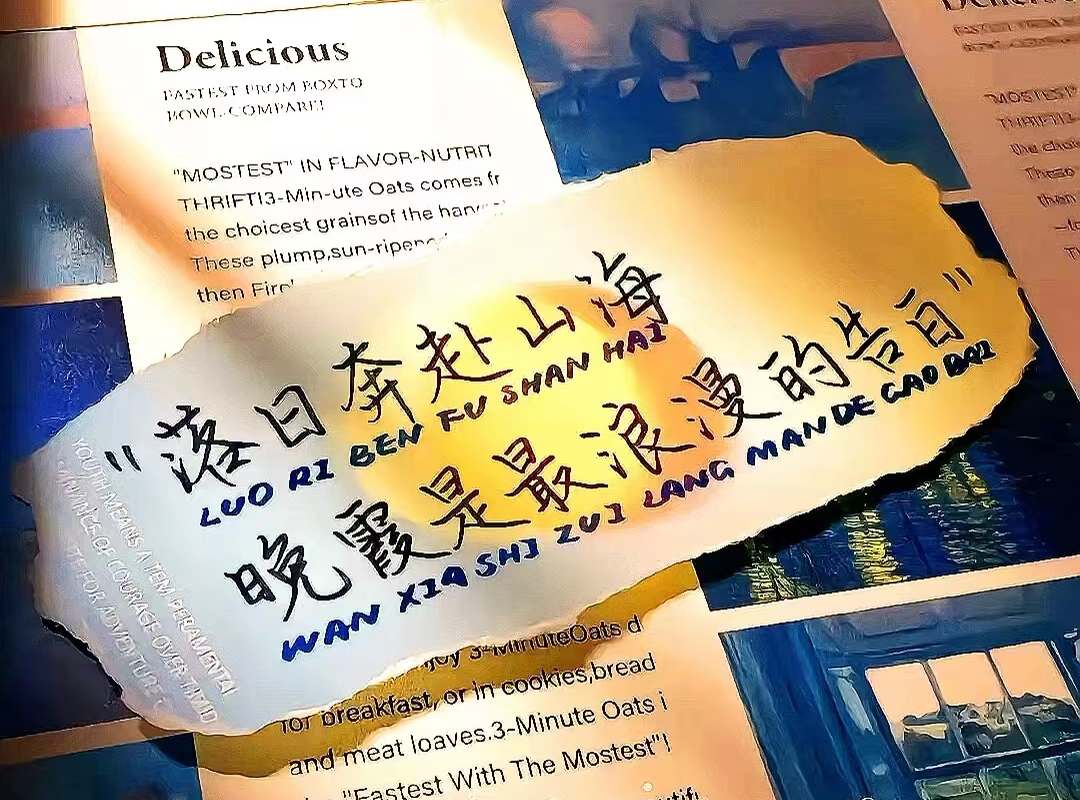 Delicious
FASTEST FROM BOXTO
BOWL-COMPARE!
"MOSTEST" IN FLAVOR-NUTRIT
THRIFTI3-Min-ute Oats comes fr
the choicest grainsof the harv
These plump,sun-ripene
then Fire
"落日奔赴山海
LUO RI BEN FU SHAN HAI
晚霞是最浪漫的告白"
WAN XIA SHI ZUI LANG MAN DE GAO BAI
YOUTH MEANS A TEM PERAMENTAI
OF COURAGE OVER TIMID
FOR ADVENTURE
njoy 3-MinuteOats d
for breakfast, or in cookies,bread
and meat loaves.3-Minute Oats i
"Fastest With The Mostest"!
"MOSTEST"
THRIFTI3-
the choic
These
then